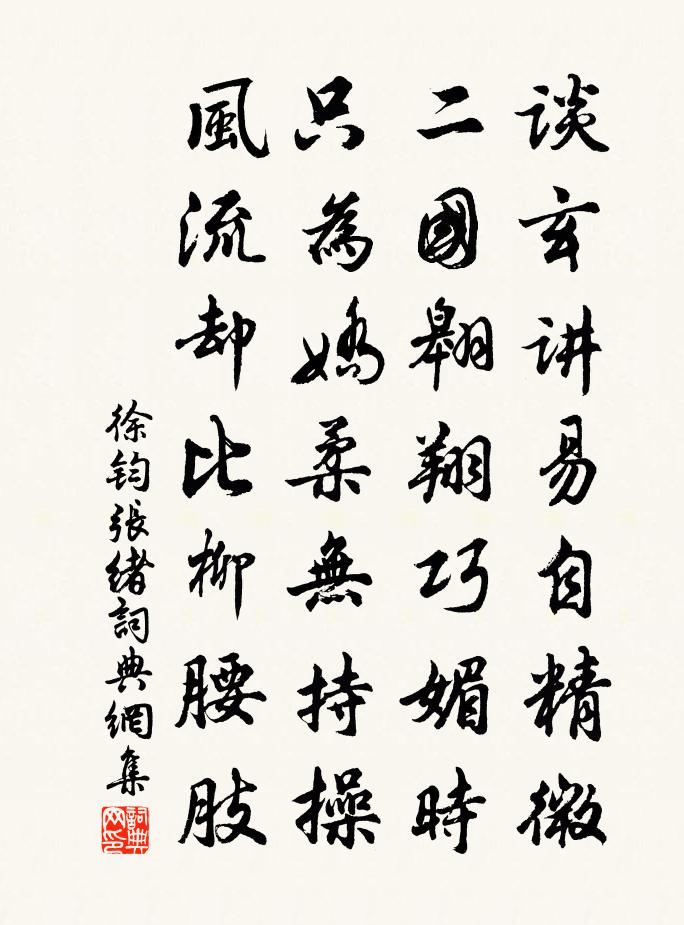 谈玄讲易自精微
二國翱翔巧媚時
只為嬌柔無持操
風流却比柳腰肢
徐钧張绪詞典網集
詞典网印